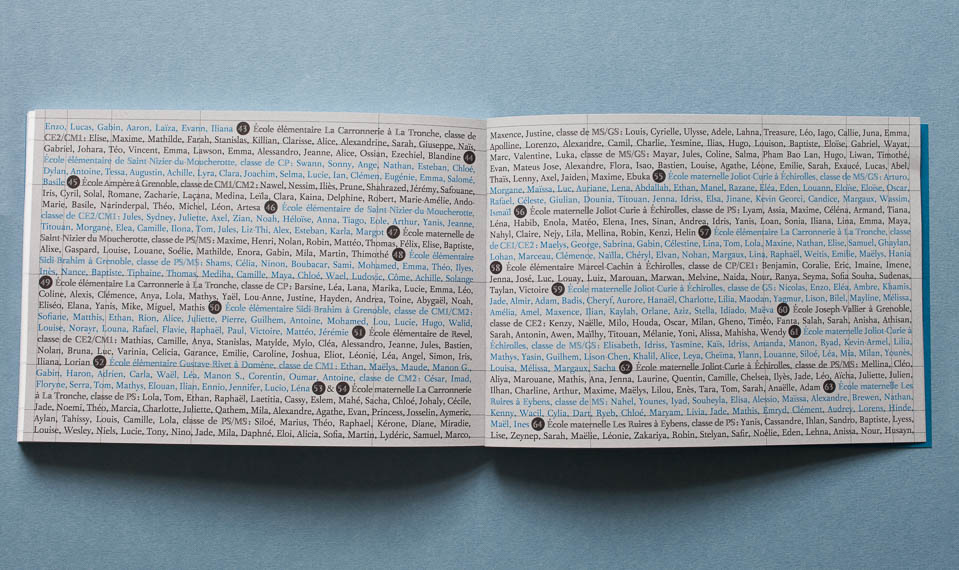 Enzo, Lucas, Gabin, Aaron, Laïza, Evann, Iliana 43 École élémentaire La Carronnerie à La Tronche, classe de
CE2/CM1 : Elise, Maxime, Mathilde, Farah, Stanislas, Killian, Clarisse, Alice, Alexandrine, Sarah, Giuseppe, Naïs,
Gabriel, Johara, Téo, Vincent, Emma, Lawson, Emma, Alessandro, Jeanne, Alice, Ossian, Ezechiel, Blandine 44
École élémentaire de Saint-Nizier-du-Moucherotte, classe de CP : Swann, Sonny, Ange, Nathan, Esteban, Chloé,
Dylan, Antoine, Tessa, Augustin, Achille, Lyra, Clara, Joachim, Selma, Lucie, Ian, Clémen, Eugénie, Emma, Salomé,
Basile 45 École Ampère à Grenoble, classe de CM1/CM2 : Nawel, Nessim, Iliès, Prune, Shahrazed, Jérémy, Safouane,
Iris, Cyril, Solal, Romane, Zacharie, Laçana, Medina, Leïla, Clara, Kaina, Delphine, Robert, Marie-Amélie, Ando-
Marie, Basile, Narinderpal, Théo, Michel, Léon, Artesa 46 École élémentaire de Saint-Nizier du Moucherotte,
classe de CE2/CM1 : Jules, Sydney, Juliette, Axel, Zian, Noah, Héloïse, Anna, Tiago, Eole, Arthur, Yanis, Jeanne,
Titouan, Morgane, Elea, Camille, Ilona, Tom, Jules, Liz-Thi, Alex, Esteban, Karla, Margot 47 École maternelle de
Saint-Nizier du Moucherotte, classe de PS/MS : Maxime, Henri, Nolan, Robin, Mattéo, Thomas, Félix, Elise, Baptiste,
Alixe, Gaspard, Louise, Louane, Soélie, Mathilde, Enora, Gabin, Mila, Martin, Thimothé 48 École élémentaire
Sidi-Brahim à Grenoble, classe de PS/MS : Shams, Célia, Ninon, Boubacar, Sami, Mohamed, Emma, Théo, Ilyes,
Inès, Nance, Baptiste, Tiphaine, Thomas, Mediha, Camille, Maya, Chloé, Wael, Ludovic, Côme, Achille, Solange
49 École élémentaire La Carronnerie à La Tronche, classe de CP : Barsine, Léa, Lana, Marika, Lucie, Emma, Léo,
Coline, Alexis, Clémence, Anya, Lola, Mathys, Yaël, Lou-Anne, Justine, Hayden, Andrea, Toine, Abygaël, Noah,
Eliséo, Elana, Yanis, Mike, Miguel, Mathis 50 École élémentaire Sidi-Brahim à Grenoble, classe de CM1/CM2 :
Sofiane, Matthis, Ethan, Rion, Alice, Juliette, Pierre, Guilhem, Antoine, Mohamed, Lou, Lucie, Hugo, Walid,
Louise, Norayr, Louna, Rafael, Flavie, Raphaël, Paul, Victoire, Mattéo, Jérémie 51 École élémentaire de Revel,
classe de CE2/CM1 : Mathias, Camille, Anya, Stanislas, Matylde, Mylo, Cléa, Alessandro, Jeanne, Jules, Bastien,
Nolan, Bruna, Luc, Varinia, Celicia, Garance, Emilie, Caroline, Joshua, Eliot, Léonie, Léa, Angel, Simon, Iris,
Iliana, Lorian 52 École élémentaire Gustave Rivet à Domène, classe de CM1 : Ethan, Maëlys, Maude, Manon G.,
Gabin, Haron, Adrien, Carla, Waël, Léa, Manon S., Corentin, Oumar, Antoine, classe de CM2 : César, Imad,
Floryne, Serra, Tom, Mathys, Elouan, Ilian, Ennio, Jennifer, Lucio, Léna 53 & 54 École maternelle La Carronnerie
à La Tronche, classe de PS : Lola, Tom, Ethan, Raphaël, Laetitia, Cassy, Eslem, Mahé, Sacha, Chloé, Johaly, Cécile,
Jade, Noemi, Théo, Marcia, Charlotte, Juliette, Qathem, Mila, Alexandre, Agathe, Evan, Princess, Josselin, Aymeric,
Aylan, Tahissy, Louis, Camille, Lola, classe de PS/MS : Siloé, Marius, Théo, Raphaël, Kérone, Diane, Miradie,
Louise, Wesley, Niels, Lucie, Tony, Nino, Jade, Mila, Daphné, Eloi, Alicia, Sofia, Martin, Lydéric, Samuel, Marco,
Maxence, Justine, classe de MS/GS : Louis, Cyrielle, Ulysse, Adele, Lahna, Treasure, Léo, Iago, Callie, Juna, Emma,
Apolline, Lorenzo, Alexandre, Camil, Charlie, Yesmine, Ilias, Hugo, Louison, Baptiste, Eloïse, Gabriel, Wayat,
Marc, Valentine, Luka, classe de MS/GS : Mayar, Jules, Coline, Salma, Pham Bao Lan, Hugo, Liwan, Timothé,
Evan, Mateus Jose, Alexandre, Flora, Isao, Bastien, Louise, Agathe, Léone, Emilie, Sarah, Exaucé, Lucas, Abel,
Thaïs, Lenny, Axel, Jaiden, Maxime, Ebuka 55 École maternelle Joliot-Curie à Échirolles, classe de MS/GS : Arturo,
Morgane, Maïssa, Luc, Auriane, Lena, Abdallah, Ethan, Manel, Razane, Eléa, Eden, Louann, Eloïse, Eloïse, Oscar,
Rafael, Céleste, Giulian, Dounia, Titouan, Jenna, Idriss, Elsa, Jinane, Kevin Georci, Candice, Margaux, Wassim,
Ismaïl 56 École maternelle Joliot Curie à Échirolles, classe de PS : Lyam, Assia, Maxime, Céléna, Armand, Tiana,
Léna, Habib, Enola, Matéo, Elena, Ines, Sinan, Andrea, Idris, Yanis, Loan, Sonia, Iliana, Lina, Emma, Maya,
Nahyl, Claire, Nejy, Lila, Mellina, Robin, Kenzi, Helin 57 École élémentaire La Carronnerie à La Tronche, classe
de CE1/CE2 : Maelys, George, Sabrina, Gabin, Célestine, Lina, Tom, Lola, Maxine, Nathan, Elise, Samuel, Ghaylan,
Lohan, Marceau, Clémence, Naïlla, Chéryl, Elvan, Nohan, Margaux, Lina, Raphaël, Weitis, Emilie, Maëlys, Hania
58 École élémentaire Marcel-Cachin à Échirolles, classe de CP/CE1 : Benjamin, Coralie, Eric, Imaine, Imene,
Jenna, José, Luc, Louay, Luiz, Marouan, Marwan, Melvine, Naïda, Nour, Ranya, Seyma, Sofia Souha, Sudenas,
Taylan, Victoire 59 École maternelle Joliot-Curie à Échirolles, classe de GS : Nicolas, Enzo, Eléa, Ambre, Khamis,
Jade, Almir, Adam, Badis, Cheryf, Aurore, Hanaël, Charlotte, Lilia, Maodan, Yagmur, Lison, Bilel, Mayline, Mélissa,
Amélia, Amel, Maxence, Ilian, Kaylah, Orlane, Aziz, Stella, Idiado, Maëva 60 École Joseph-Vallier à Grenoble,
classe de CE2 : Kenzy, Naëlle, Milo, Houda, Oscar, Milan, Gheno, Timéo, Fanta, Salah, Sarah, Anisha, Athisan,
Sarah, Antonin, Awen, Maïlhy, Titouan, Mélanie, Yoni, Alissa, Mahisha, Wendy 61 École maternelle Joliot-Curie à
Échirolles, classe de MS/GS : Elisabeth, Idris, Yasmine, Kaïs, Idriss, Amanda, Manon, Ryad, Kevin-Armel, Lilia,
Mathys, Yasin, Guilhem, Lison-Chen, Khalil, Alice, Leya, Cheïma, Ylann, Louanne, Siloé, Léa, Mia, Milan, Younès,
Louisa, Mélissa, Margaux, Sacha 62 École maternelle Joliot-Curie à Échirolles, classe de PS/MS : Mellina, Cléo,
Aliya, Marouane, Mathis, Ana, Jenna, Laurine, Quentin, Camille, Chelsea, Ilyès, Jade, Léo, Aïcha, Juliette, Julien,
Ilhan, Charline, Arthur, Maxime, Maëlys, Lilou, Enès, Tara, Tom, Sarah, Anaëlle, Adam 63 École maternelle Les
Ruires à Eybens, classe de MS : Nahel, Younes, Iyad, Souheyla, Elisa, Alessio, Maïssa, Alexandre, Brewen, Nathan,
Kenny, Wacil, Cylia, Dart, Ryeb, Chloé, Maryam, Livia, Jade, Mathis, Emryd, Clément, Audrey, Lorens, Hinde,
Maël, Ines 64 École maternelle Les Ruires à Eybens, classe de PS : Yanis, Cassandre, Ihlan, Sandro, Baptiste, Lyess,
Lise, Zeynep, Sarah, Maëlie, Léonie, Zakariya, Robin, Stelyan, Safir, Noélie, Eden, Lehna, Anissa, Nour, Husayn,